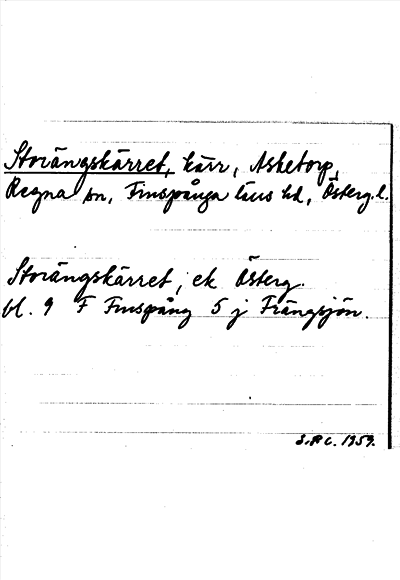 Storängskärret, kärr, Asketorp,
Regna sn, Finspånga läns hd, Österg. l.
Storängskärret, ek Österg.
bl. 9 F Finspång 5 j Frängsjön.
S.P.C. 1959.